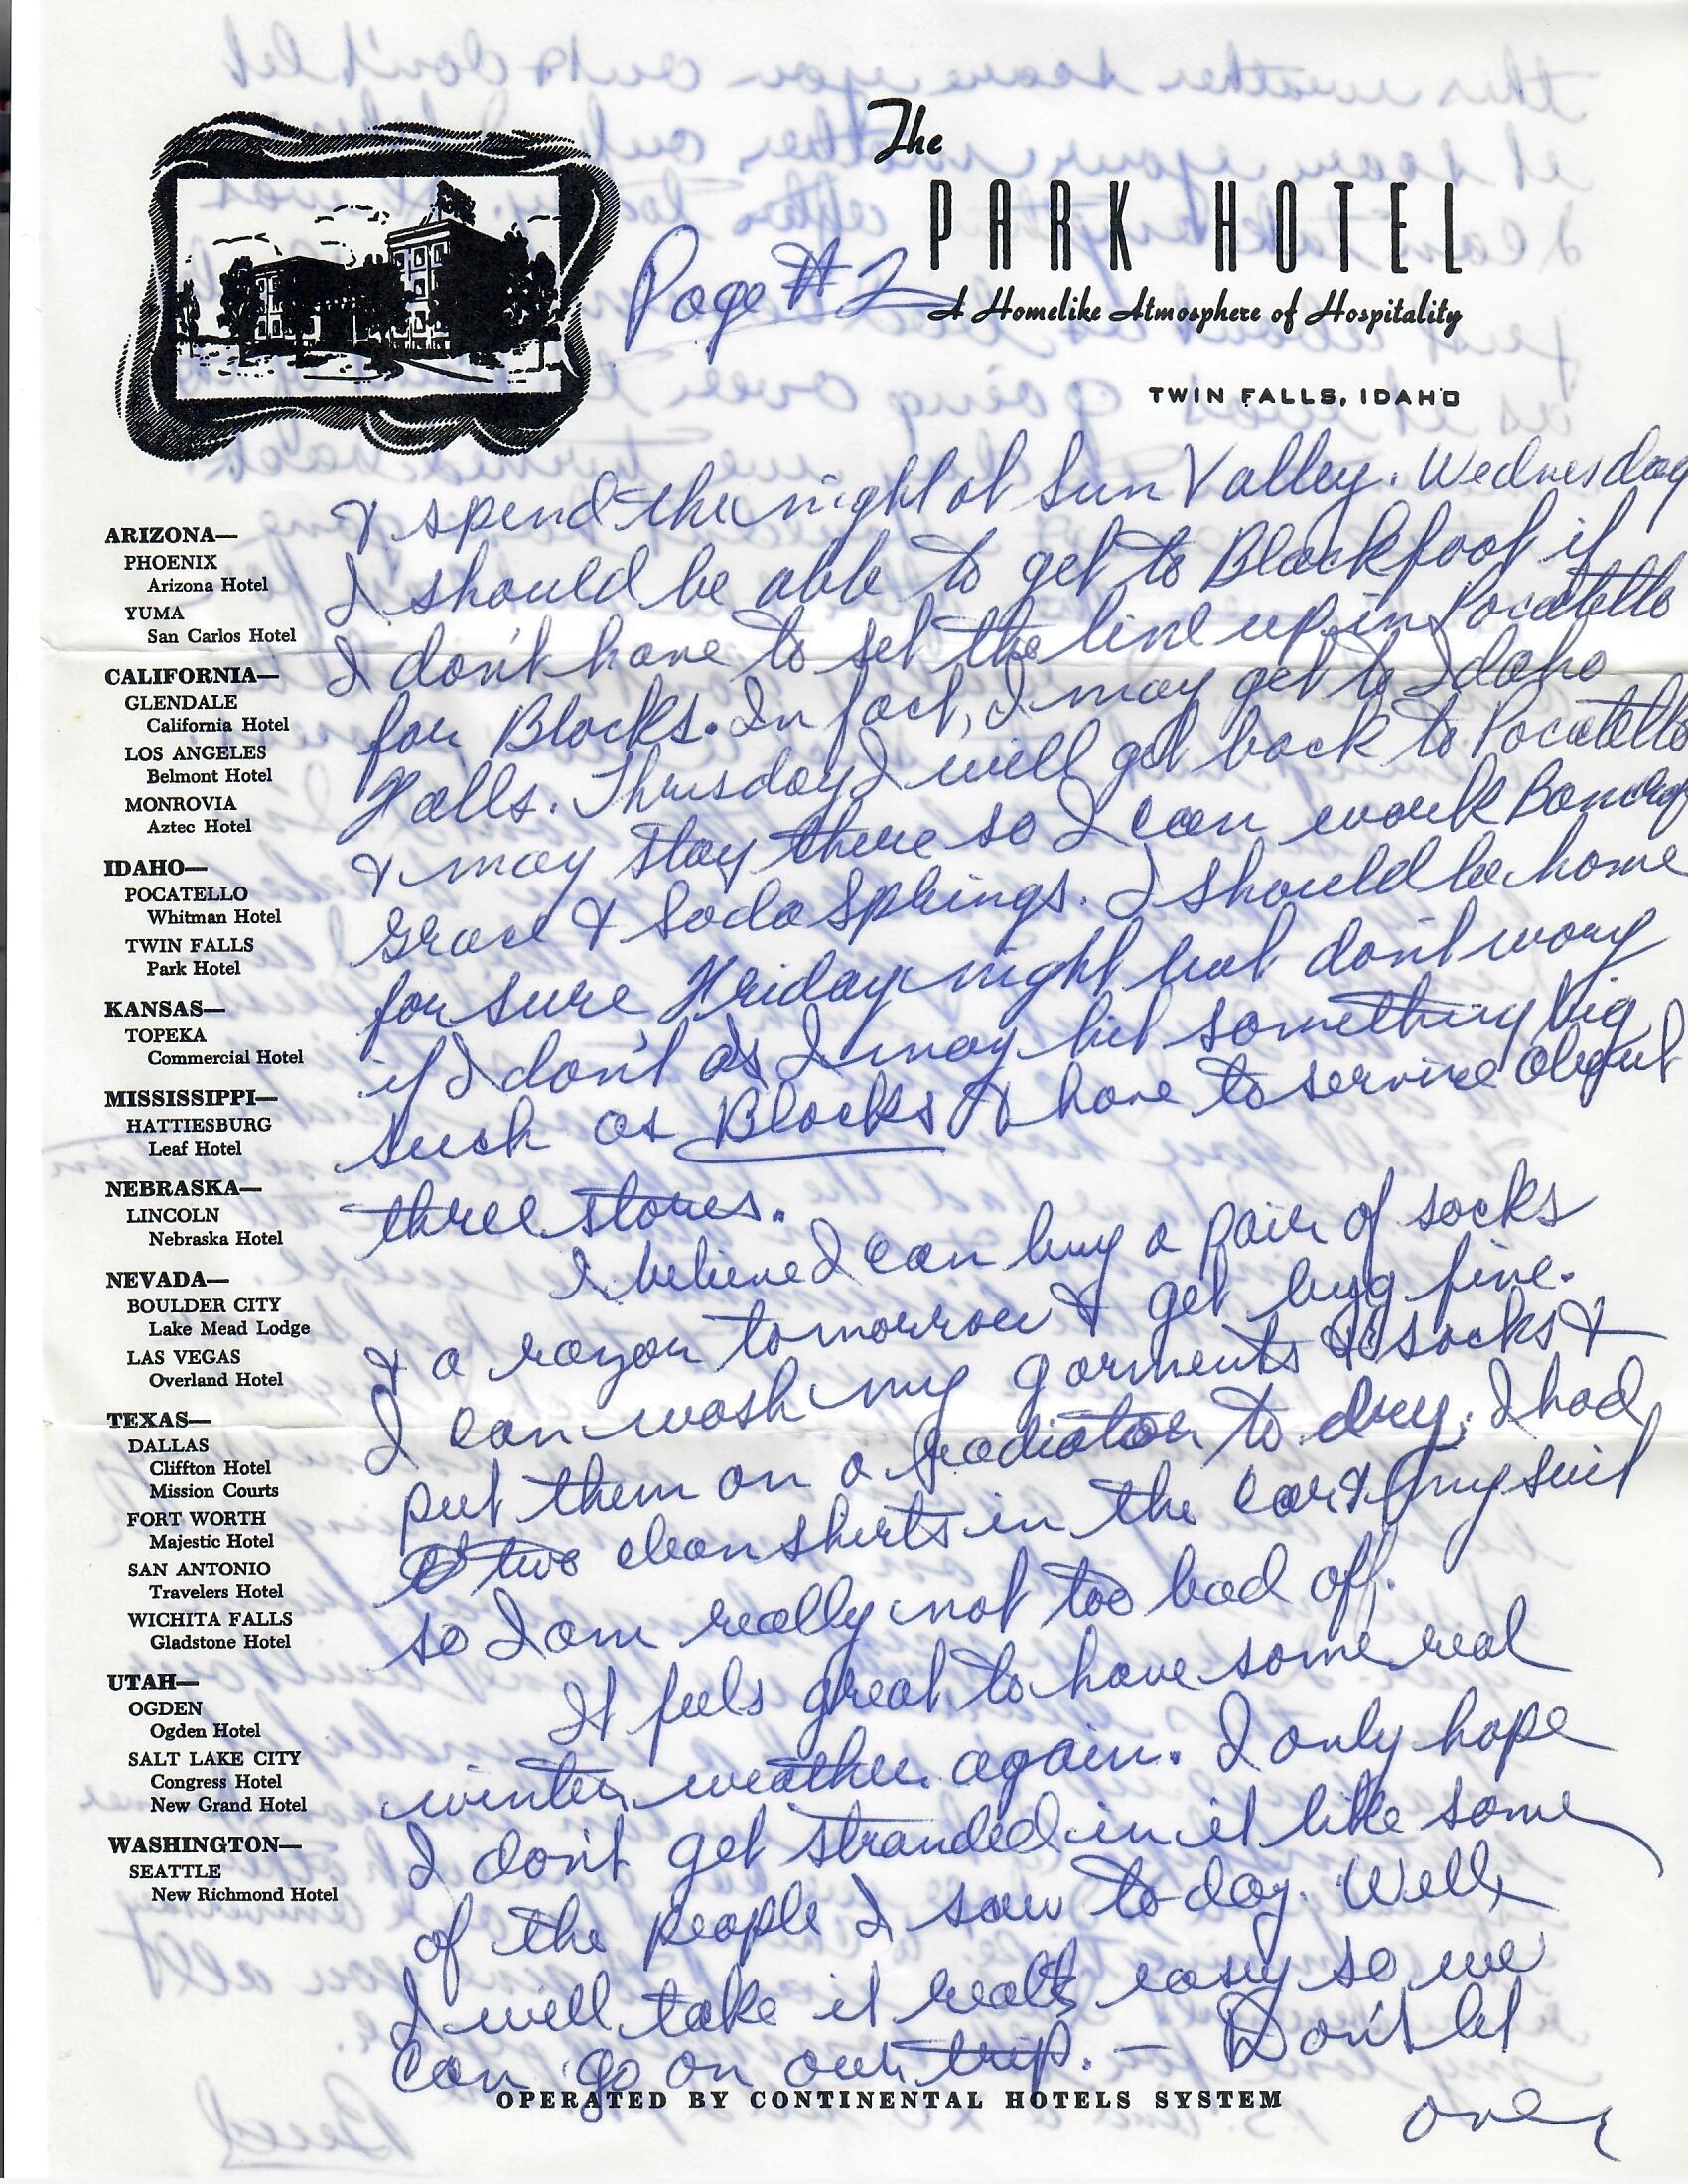 The
PARK HOTEL
Page # 2
A Homelike Atmosphere of Hospitality
TWIN FALLS, IDAHO
ARIZONA—
PHOENIX
Arizona Hotel
YUMA
San Carlos Hotel
CALIFORNIA—
GLENDALE
California Hotel
LOS ANGELES
Belmont Hotel
MONROVIA
Aztec Hotel
IDAHO—
POCATELLO
Whitman Hotel
TWIN FALLS
Park Hotel
KANSAS—
TOPEKA
Commercial Hotel
MISSISSIPPI—
HATTIESBURG
Leaf Hotel
NEBRASKA—
LINCOLN
Nebraska Hotel
NEVADA—
BOULDER CITY
Lake Mead Lodge
LAS VEGAS
Overland Hotel
TEXAS—
DALLAS
Cliffton Hotel
Mission Courts
FORT WORTH
Majestic Hotel
SAN ANTONIO
Travelers Hotel
WICHITA FALLS
Gladstone Hotel
UTAH—
OGDEN
Ogden Hotel
SALT LAKE CITY
Congress Hotel
New Grand Hotel
WASHINGTON—
SEATTLE
New Richmond Hotel
& spend the night at Sun Valley. Wednesday
I should be able to get to Blackfoot if
I don't have to set the line up in Pocatello
for Blocks. In fact, I may get to Idaho
Falls. Thursday I will get back to Pocatello
& may stay there so I can work
Grace & Soda Springs. I should be home
for sure Friday night but don't worry
if I don't as I may hit something big
such as Blocks & have to service
three stores.
I believe I can buy a pair of socks
& a razor tomorrow & get by fine.
I can wash my garments & socks &
put them on a radiator to dry. I had
two clean shirts in the car & my suit
so I am really not too bad off.
It feels great to have some real
winter weather again. I only hope
I don't get stranded in it like some
of the people I saw today. Well,
I will take it real easy so we
can go on our trip. — Don't let
over
OPERATED BY CONTINENTAL HOTELS SYSTEM